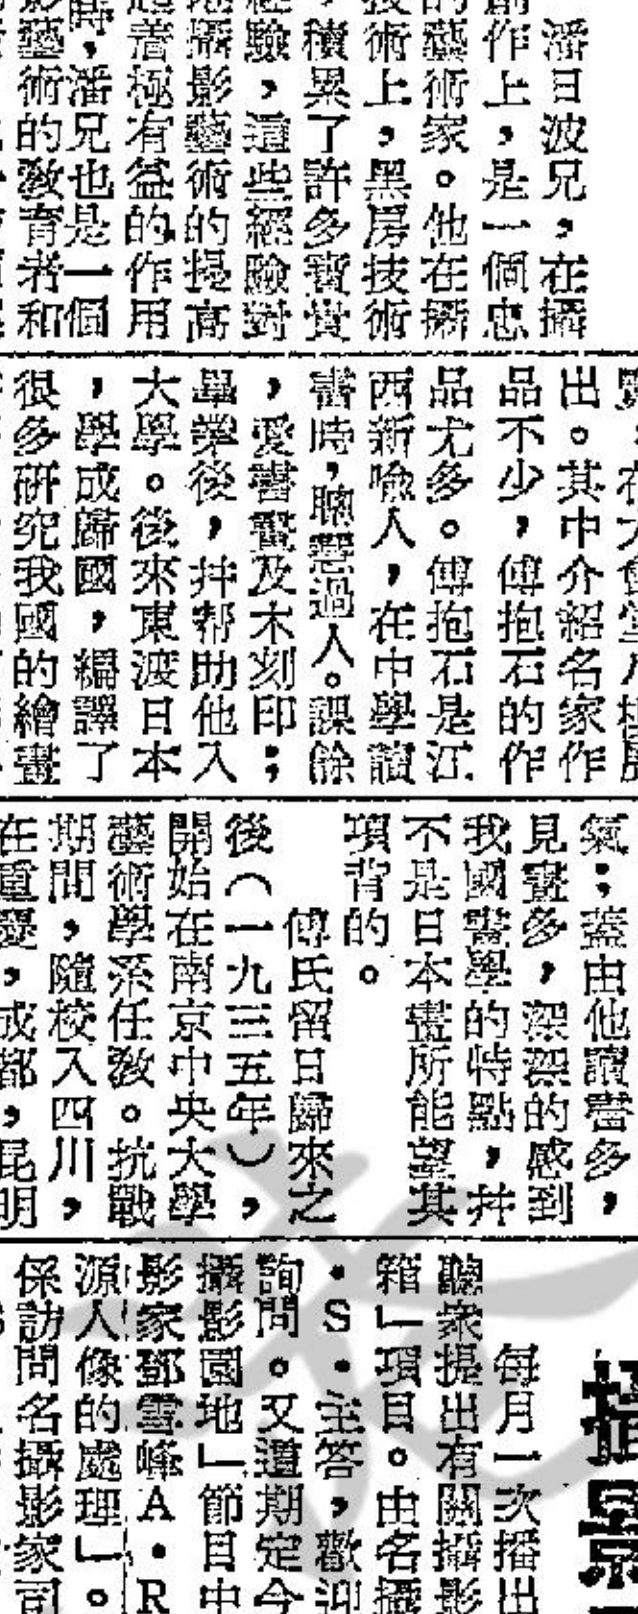 潘日波兄，在攝
作上，是一個忠
的藝術家。他在攝
技術上，黑房技術
，積累了許多寶貴
經驗，這些經驗對
攝影藝術的提高
起着極有益的作用
，潘兄也是一個
影藝術的教育者和
出。其中介紹名家作
品不少，傅抱石的作
品尤多。傅抱石是江
西新喩人，在中學讀
書時，聰慧過人。課餘
，愛書畫及木刻印；
畢業後，并帮助他入
大學。後來東渡日本
，學成歸國，編譯了
很多研究我國的繪畫
氣；蓋由他讀書多，
見畫多，深深的感到
我國畫學的特點，并
不是日本畫所能望其
項背的。
傅氏留日歸來之
後（一九三五年），
開始在南京中央大學
藝術學系任教。抗戰
期間，隨校入四川，
在重慶，成都，昆明
每月一次播出
聽衆提出有關攝影
箱」項目。由名攝
・S・主答，歡迎
詢問。又這期定今
攝影園地」節目中
影家鄧雪峰A・R
源人像的處理」。
係訪問名攝影家司